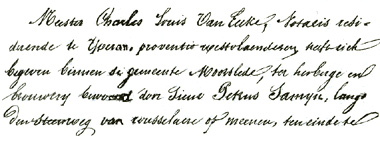 Meester Charles Louis Van Eecke, Notaris resi-
deerende te Yperen, proventie westvlaenderen, heeft zich
begeven binnen de gemeente Moorslede, ter herberge en
brouwery bewoond door Sieur Petrus Samyn, langs
den steenweg van rousselaere of meenen, ten einde te